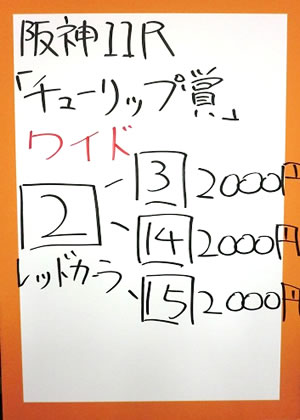 阪神11R
「チューリップ賞」
ワイド
2
3 2000円
14 2000円
レッドカーラ
15 2000円